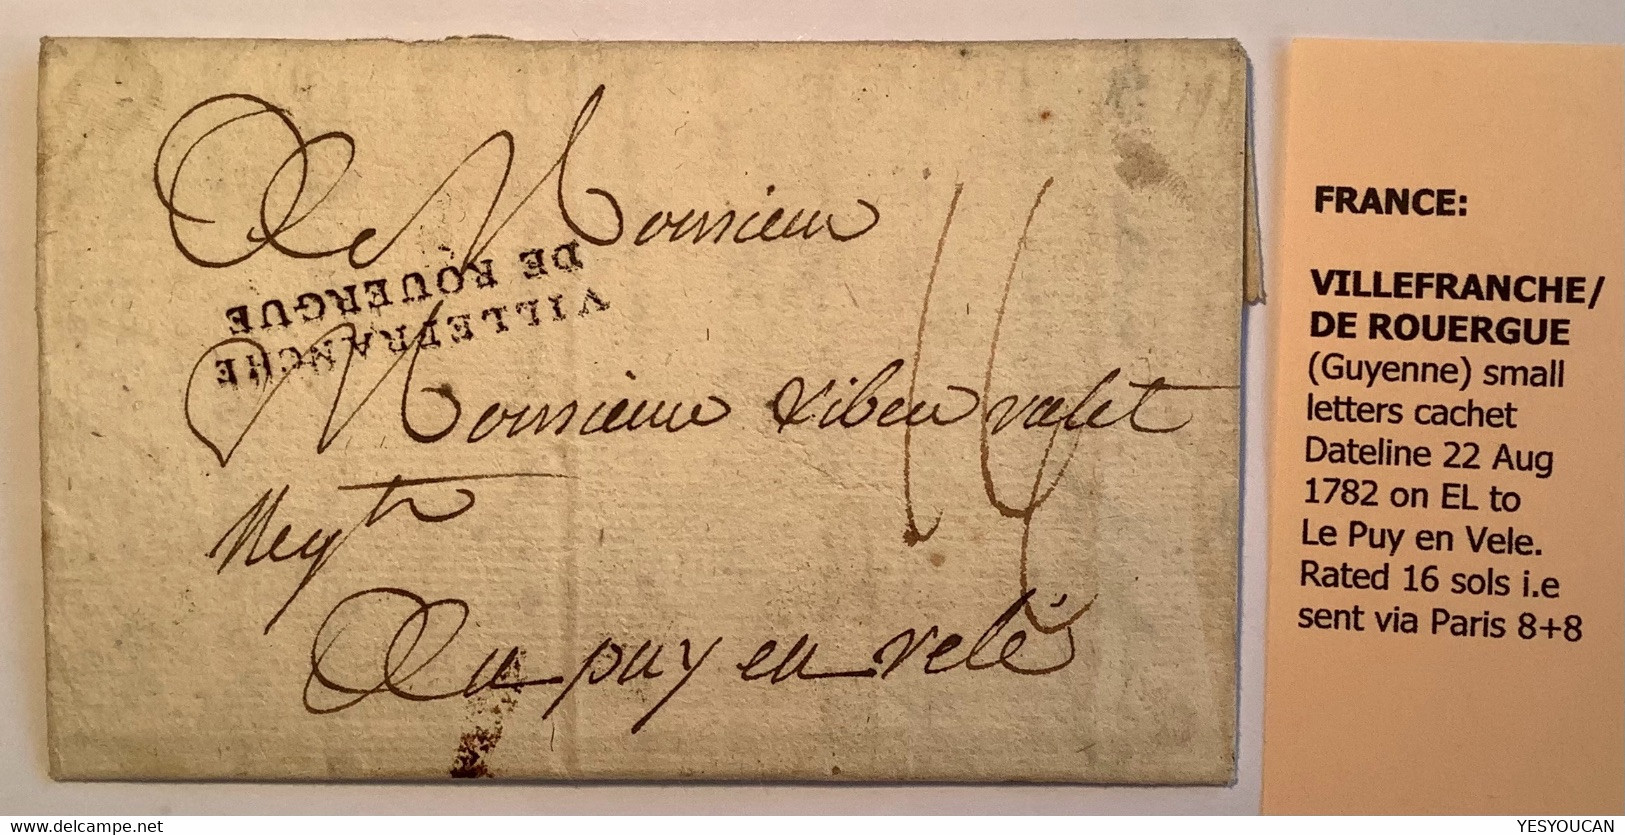 A Monsieur
VILLEFRANCHE
DE ROUERGUE
Monsieur
16
Negt
Au puy en velé
FRANCE:
VILLEFRANCHE/
DE ROUERGUE
(Guyenne) small
letters cachet
Dateline 22 Aug
1782 on EL to
Le Puy en Vele.
Rated 16 sols i.e
sent via Paris 8+8
www.delcampe.net
YESYOUCAN